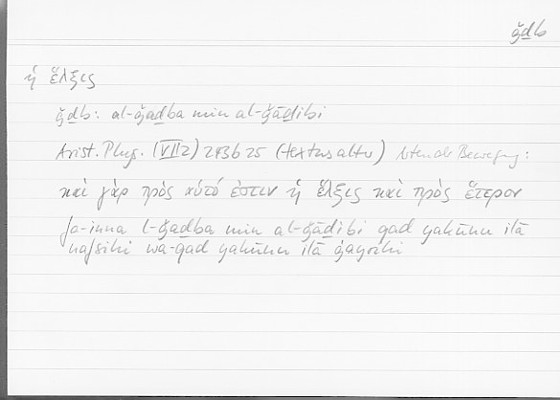 ǧḏb
ἡ ἕλξις
ǧḏb: al-ǧaḏba min al-ǧāḏibi
Arist. Phys. (VII 2) 243b25 (textus alter) Arten der Bewegung:
καὶ γὰρ πρὸς αὑτό ἐστιν ἡ ἕλξις καὶ πρὸς ἕτερον
fa-inna l-ǧaḏba min al-ǧāḏibi qad yakūnu ilā
nafsihi wa-qad yakūnu ilā ġayrihi